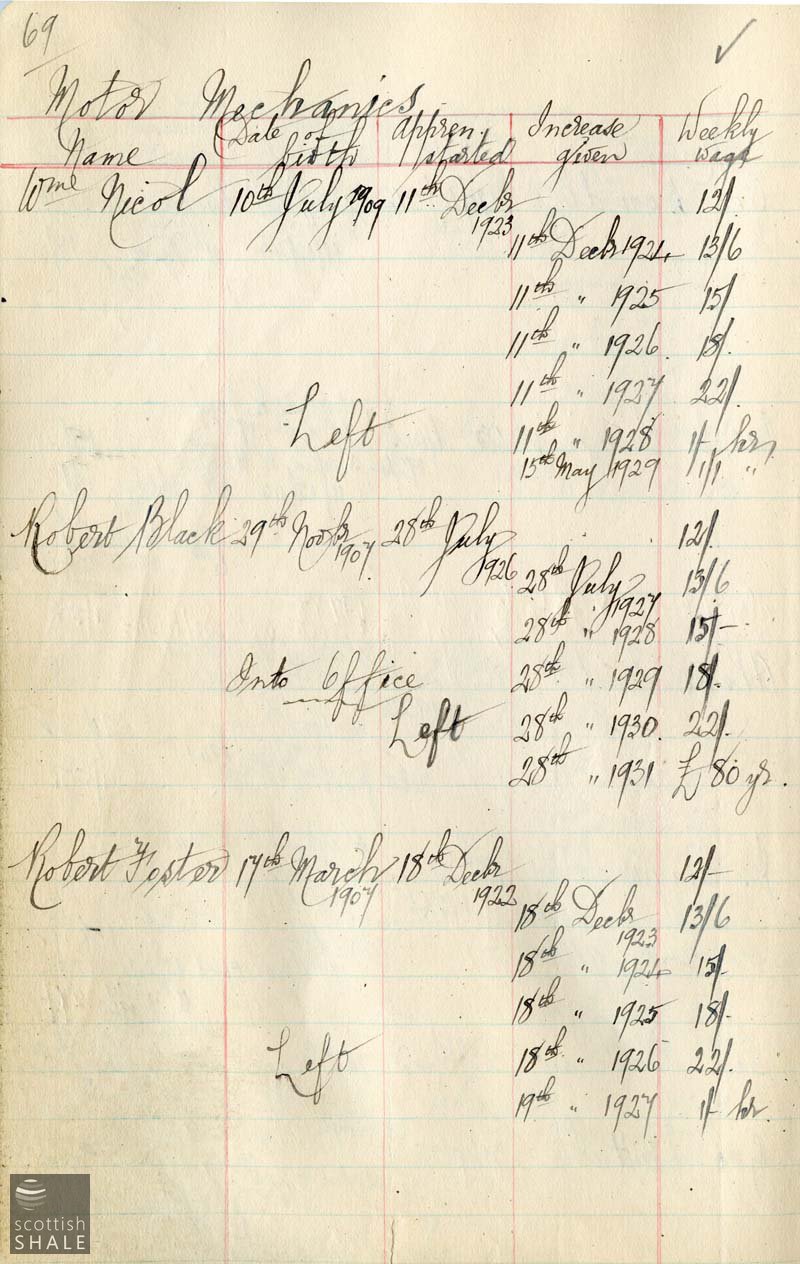 69
Motor Mechanics
Name Date of birth Appren. started Increase given Weekly wage
Wm Nicol 10th July 1909 11th Decbr 1923 12/.
11th Decbr 1924 13/6
11th " 1925 15/
11th " 1926. 18/.
11th " 1927 22/.
Left 11th " 1928 1/- hr.
15th May 1929 1/1 "
Robert Black 29th Novbr 1907. 28th July 1926 12/.
28th July 1927 13/6
28th " 1928 15/-
Into Office 28th " 1929 18/.
Left 28th " 1930. 22/.
28th " 1931 £80 yr.
Robert Fester 17th March 1907 18th Decbr 1922 12/-
18th Decbr 1923 13/6
18th " 1924 15/-
18th " 1925 18/-
Left 18th " 1926 22/.
19th " 1927 1/- hr.
scottish
SHALE